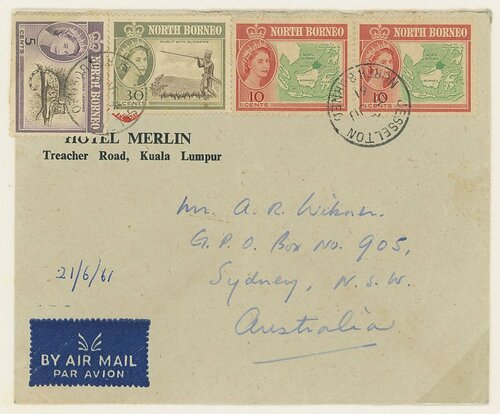 NORTH BORNEO
5
CENTS
NORTH BORNEO
MURUT WITH BLOWPIPE
30
CENTS
NORTH BORNEO
10
CENTS
NORTH BORNEO
10
CENTS
JESSELTON
HOTEL MERLIN
Treacher Road, Kuala Lumpur
Mr. A. R. Wikner.
G.P.O Box No. 905,
Sydney, N.S.W.
Australia
21/6/61
BY AIR MAIL
PAR AVION